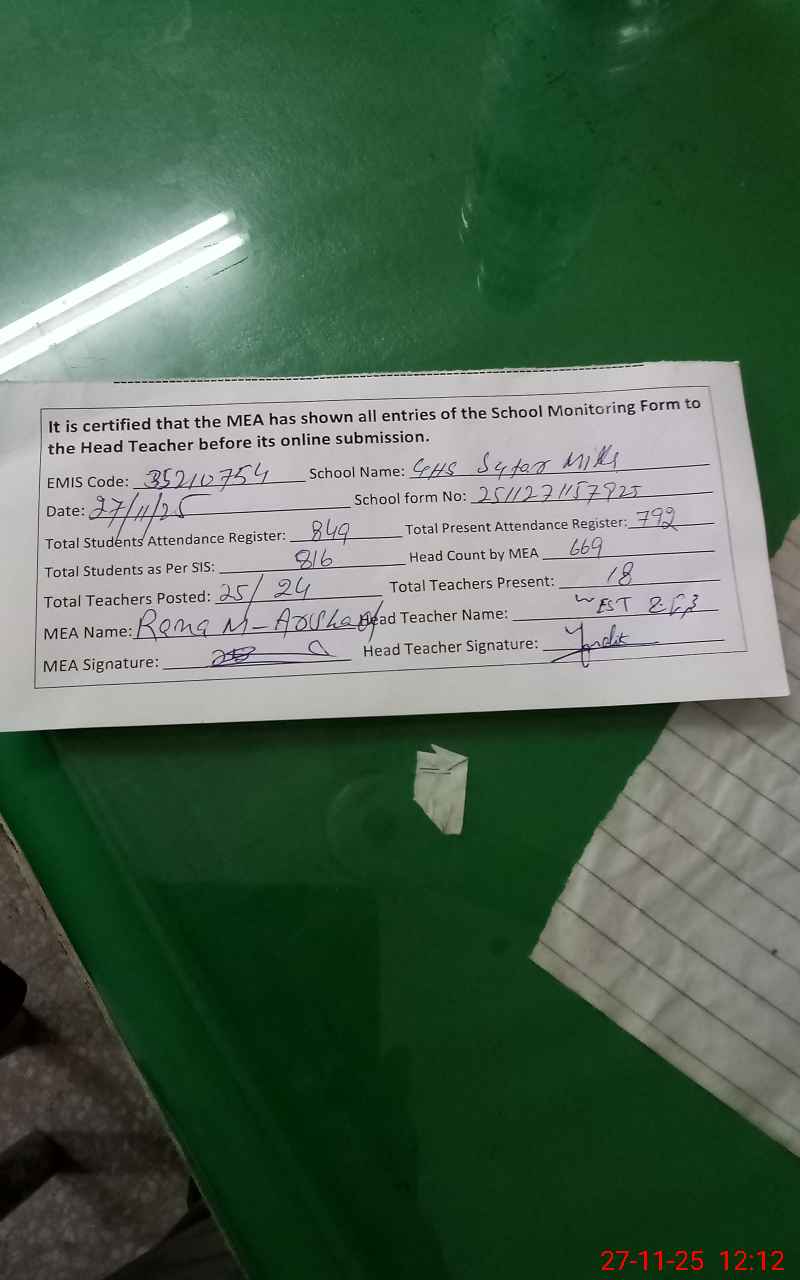 It is certified that the MEA has shown all entries of the School Monitoring Form to
the Head Teacher before its online submission.
EMIS Code: 35210754 School Name: GHS Sutar Mills
Date: 27/11/25 School form No: 2511271157925
Total Students Attendance Register: 849 Total Present Attendance Register: 792
Total Students as Per SIS: 816 Head Count by MEA 669
Total Teachers Posted: 25/24 Total Teachers Present: 18
MEA Name: Rana M-Arshad Head Teacher Name:
MEA Signature: Head Teacher Signature:
27-11-25 12:12